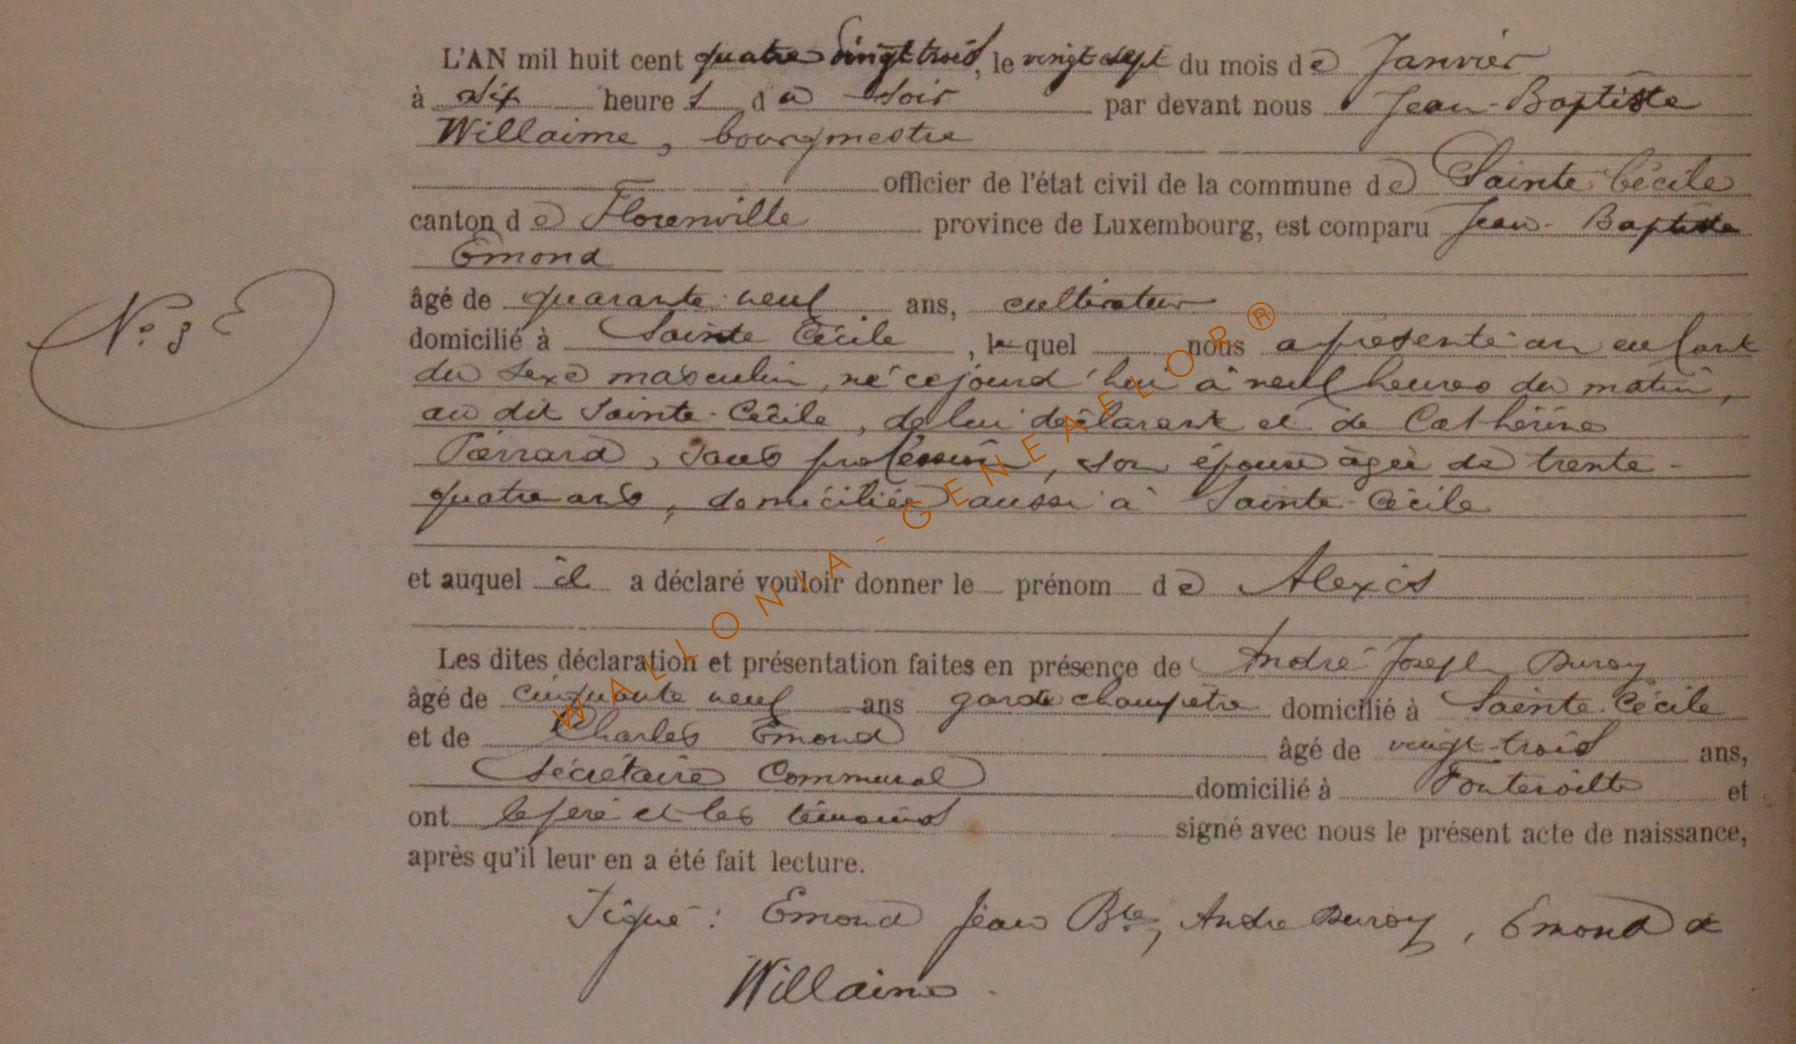 L'AN mil huit cent quatre vingt trois, le vingt sept du mois de Janvier
à six heures du soir par devant nous Jean-Baptiste
Willaime, bourgmestre
officier de l'état civil de la commune de Sainte Cécile
canton de Florenville province de Luxembourg, est comparu Jean-Baptiste
Emond
âgé de quarante-neuf ans, cultivateur
domicilié à Sainte Cécile, lequel nous a présenté un enfant
No 3 E
du sexe masculin, né cejourd'hui à neuf heures du matin,
au dit Sainte-Cécile, de lui déclarant et de Catherine
Pierrard, sans profession, son épouse âgée de trente-
quatre ans, domiciliée aussi à Sainte-Cécile
et auquel il a déclaré vouloir donner le prénom de Alexis
Les dites déclaration et présentation faites en présence de André Joseph Duroy
âgé de cinquante neuf ans garde champêtre domicilié à Sainte-Cécile
et de Charles Emond âgé de vingt-trois ans,
Sécrétaire Communal domicilié à Fontenoille et
ont le père et les témoins signé avec nous le présent acte de naissance,
après qu'il leur en a été fait lecture.
Signé : Emond Jean Bte, André Duroy, Emond &
Willaime.
WALLONIA-GENEAFLOR®